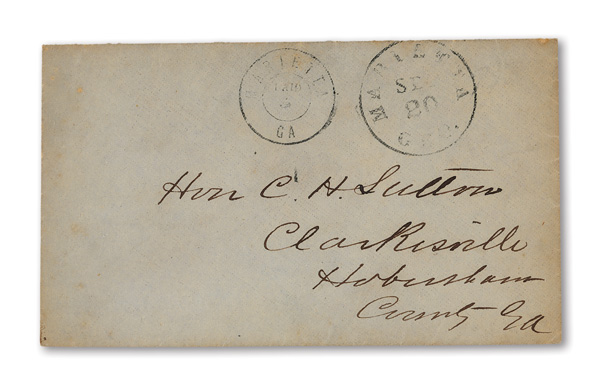 MARIETTA
PAID
3
GA
MARIETTA
SEP
20
GEO.
Hon C. H. Sutton
Clarkesville
Habersham
County Ga